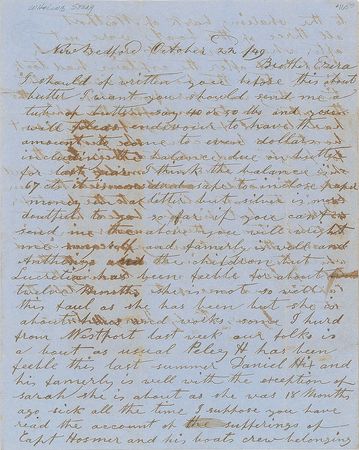 WHALING STORY
New Bedford October 22 /49
Brother Ezra
I should of written you before this about
butter I want you should send me a
tub of butter say 40 or 50 lbs and you
will please endeavour to have the
amount to come to even dollars
including the balance due on butter
for last year I think the balance is
67 cts it is considered safe to inclose paper
money in a letter but silver is
doubtful to go so far if you can
send me then about you will
me myself and famerly is well and
and the children but
Lucretia has been feeble for about
twelve Months she is not so well
this faul as she has been but she is
about home and works some I hurd
from Westport last week our folks is
about as usual Peleg H has been
feeble this last summer Daniel Hix and
his famerly is well with the exception of
sarah she is about as she was 18 Months
ago sick all the time I suppose you have
read the account of the sufferings of
Capt Hosmer and his boats crew belonging